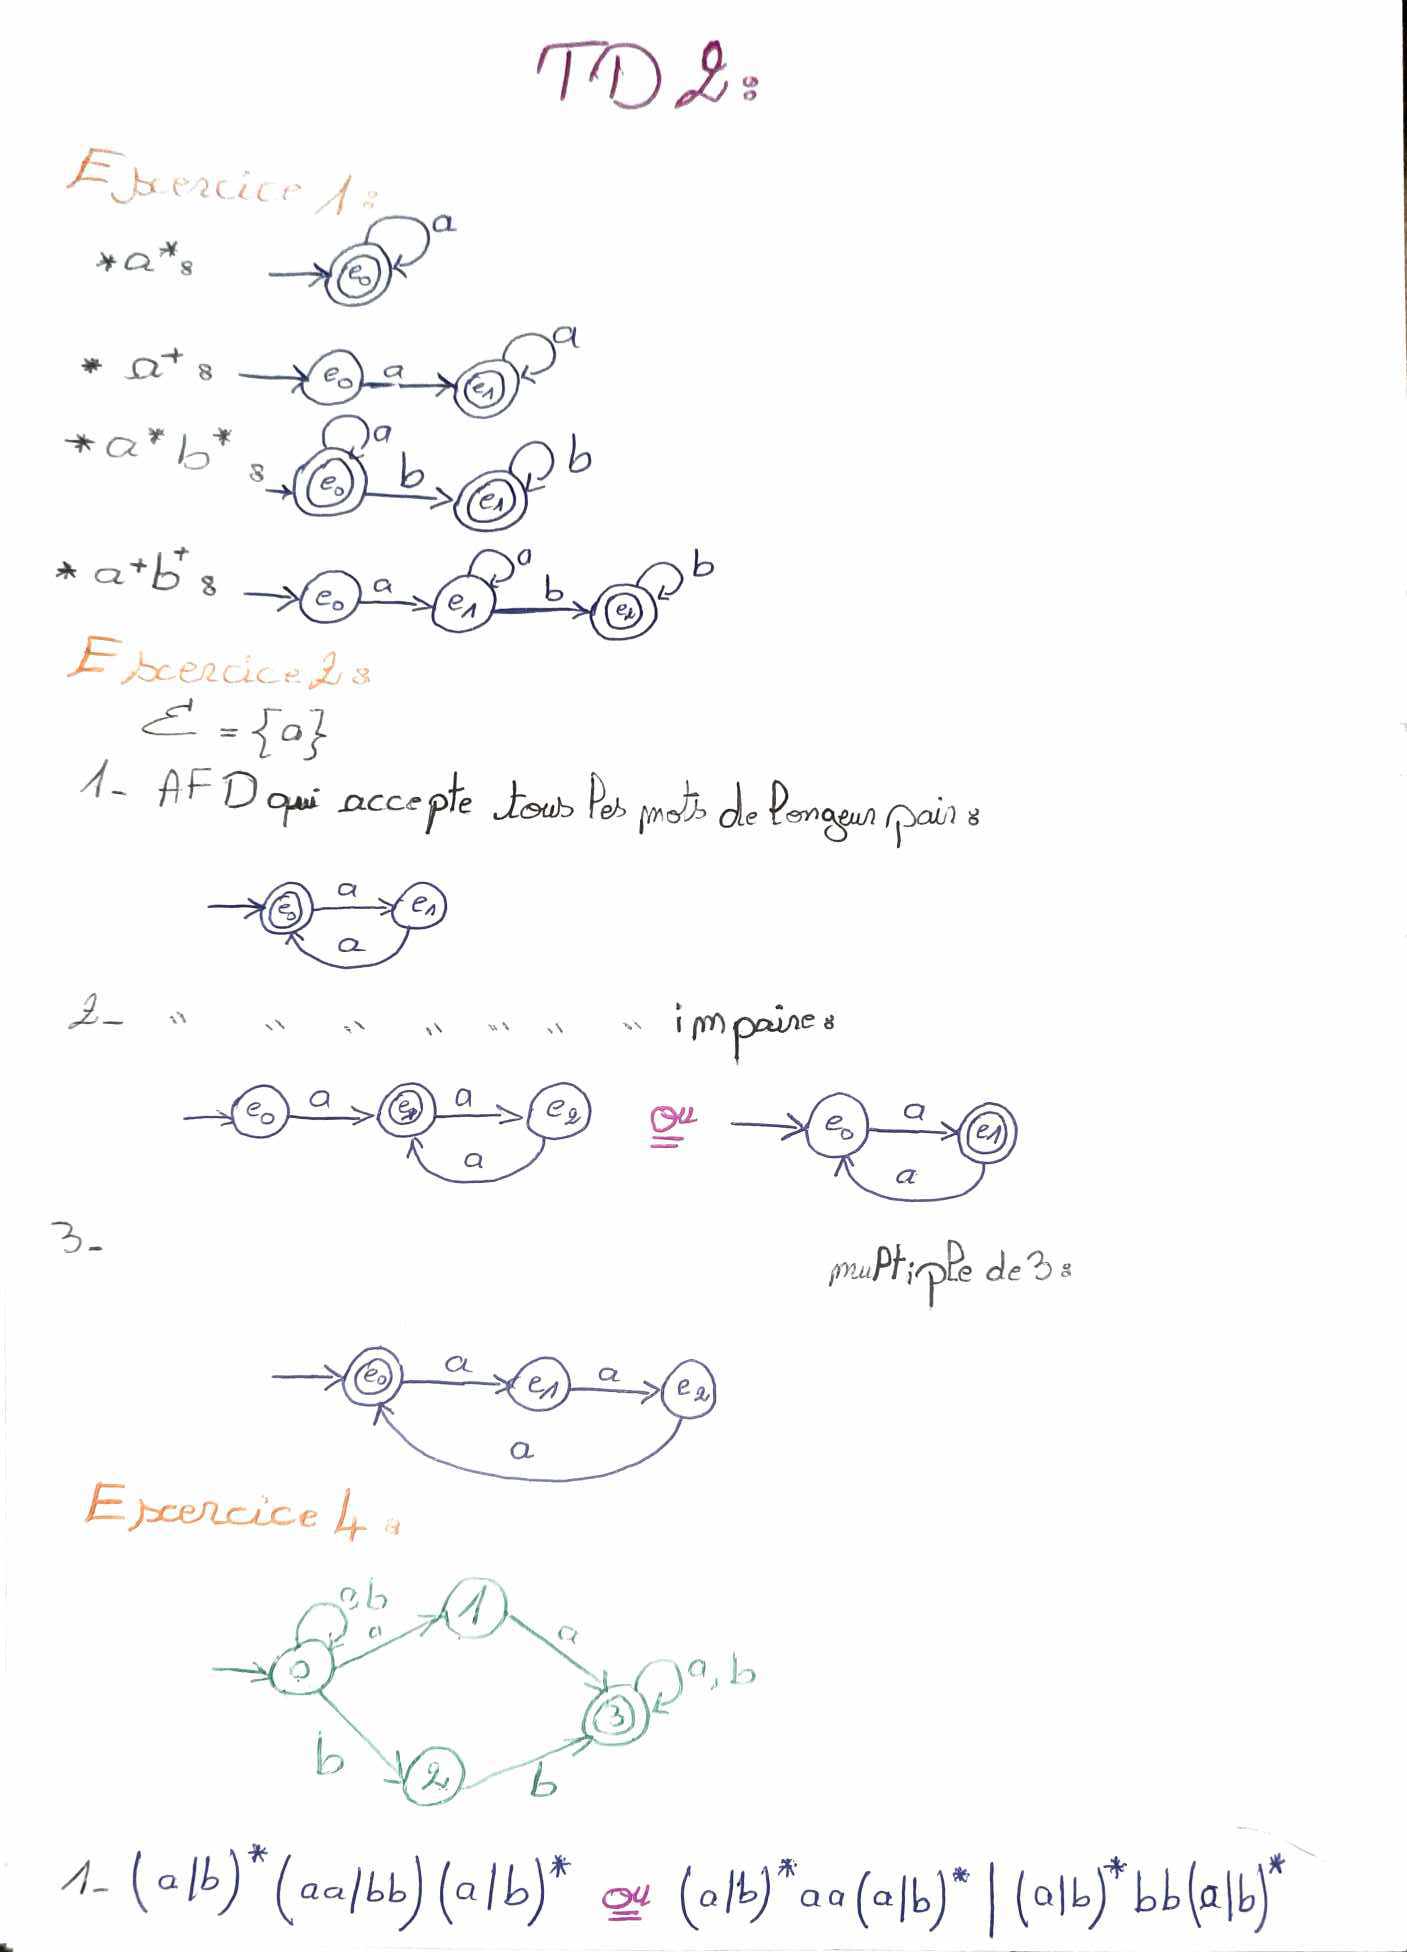 TD2:
Exercice 1:
*a*: e0 a
* a+: e0 a e1 a
*a*b*: e0 a b e1 b
* a+b+: e0 a e1 a b e2 b
Exercice 2:
Ɛ = {a}
1- AFD qui accepte tous les mots de longeur pair:
e0 a e1 a
2- " " " " " " " impaire:
e0 a e1 a e2 a ou e0 a e1 a
3- multiple de 3:
e0 a e1 a e2 a
Exercice 4:
0 a,b a 1 a 3 a,b
b 2 b
1- (a|b)*(aa|bb)(a|b)* ou (a|b)*aa(a|b)* | (a|b)*bb(a|b)*